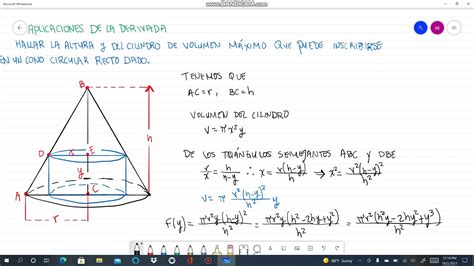 Microsoft Whiteboard
APLICACIONES DE LA DERIVADA
HALLAR LA ALTURA y DEL CILINDRO DE VOLUMEN MÁXIMO QUE PUEDE INSCRIBIRSE
EN UN CONO CIRCULAR RECTO DADO.
TENEMOS QUE
AC=r, BC=h
VOLUMEN DEL CILINDRO
V=πr²y
DE LOS TRIÁNGULOS SEMEJANTES ABC Y DBE
r/x = h/(h-y) ∴ x = r(h-y)/h → x² = r²(h-y)²/h²
V = π r²(h-y)²/h² y
F(y) = πr²y(h-y)²/h² = πr²y(h²-2hy+y²)/h² = πr²(h²y-2hy²+y³)/h²
B
D x E
y
h
A C
r